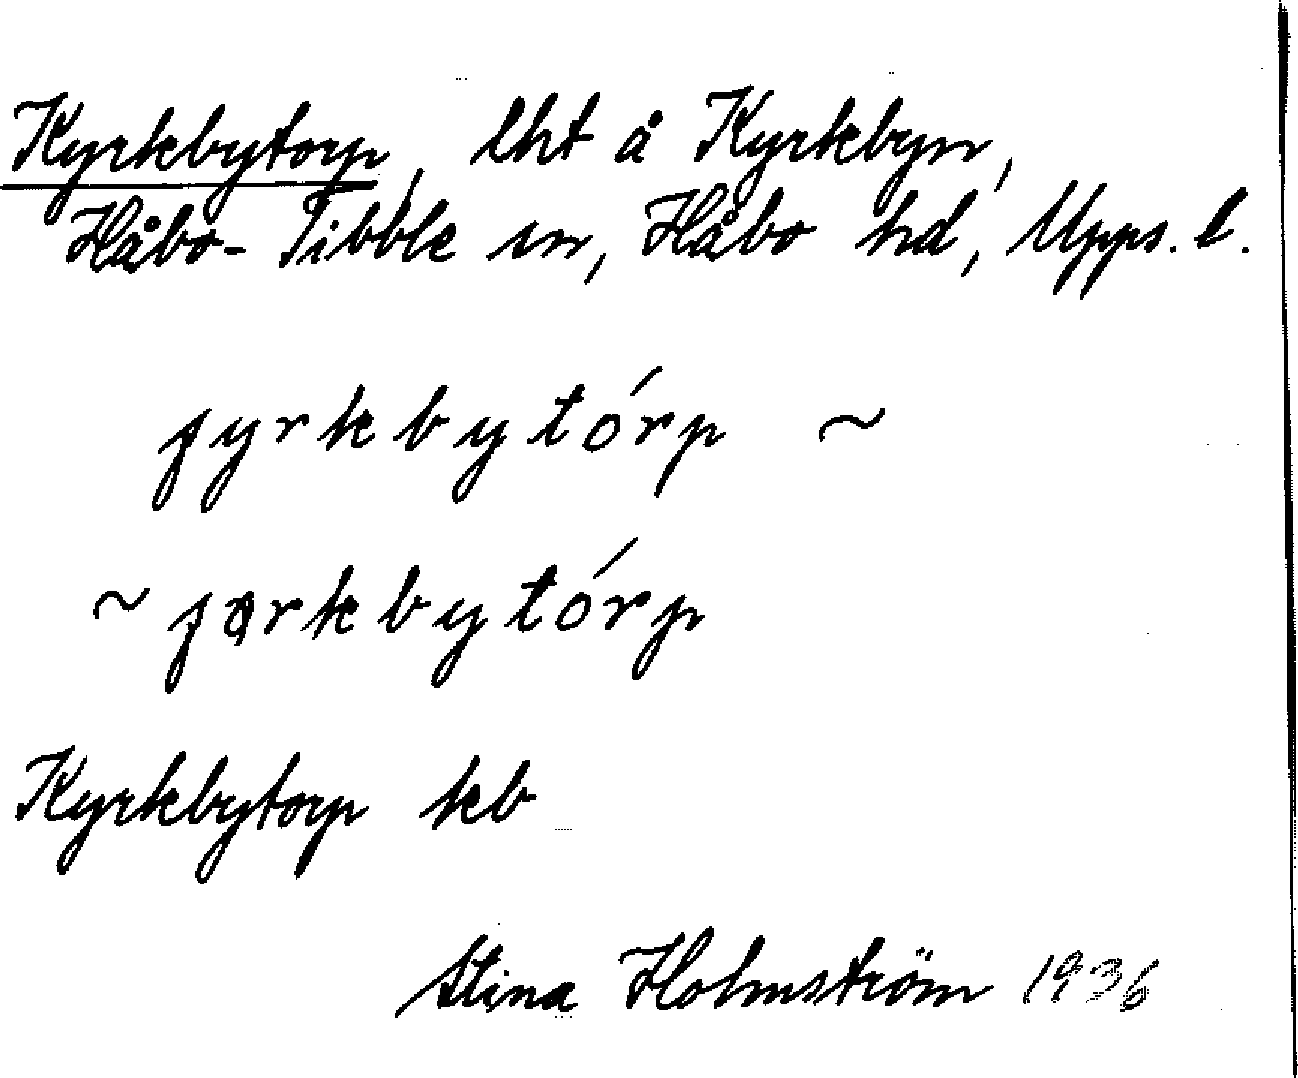 Kyrkbytorp, lht å Kyrkbyn,
Håbo-Tibble sn, Håbo hd, Upps. l.
ʃyrkbytórp ~
~ ʃɵrkbytórp
Kyrkbytorp kb
Stina Holmström 1936